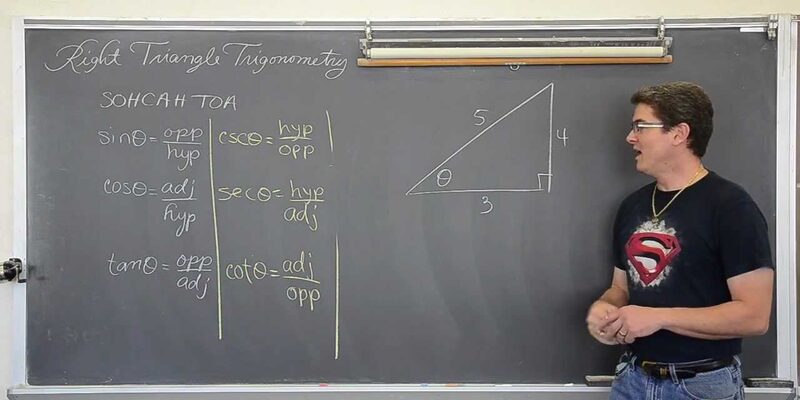 Right Triangle Trigonometry
SOHCAHTOA
sinθ = opp/hyp
cscθ = hyp/opp
cosθ = adj/hyp
secθ = hyp/adj
tanθ = opp/adj
cotθ = adj/opp
5
4
θ
3
S